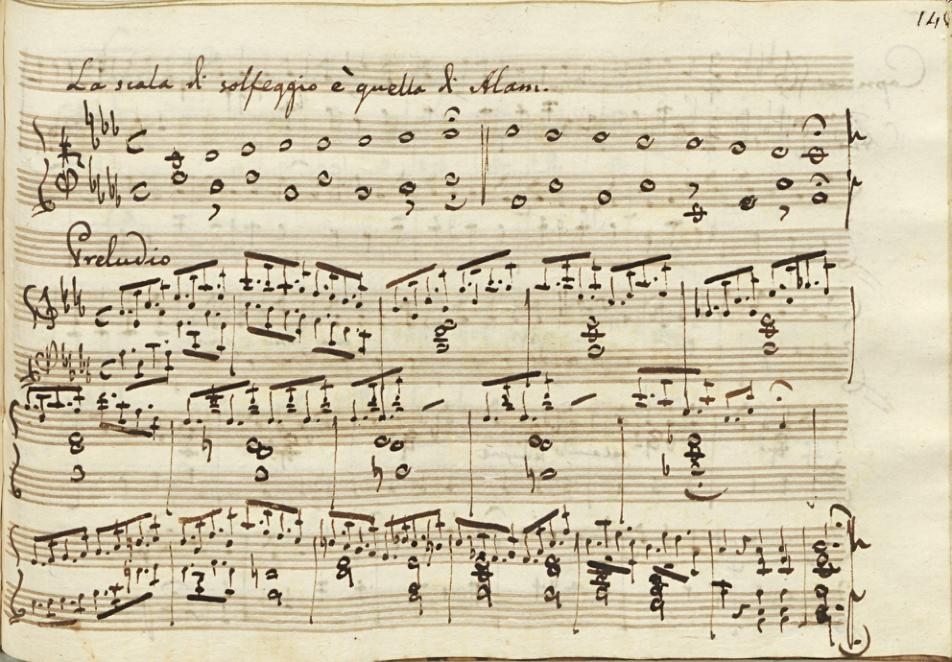 La scala di solfeggio è quella di Alam.
Preludio